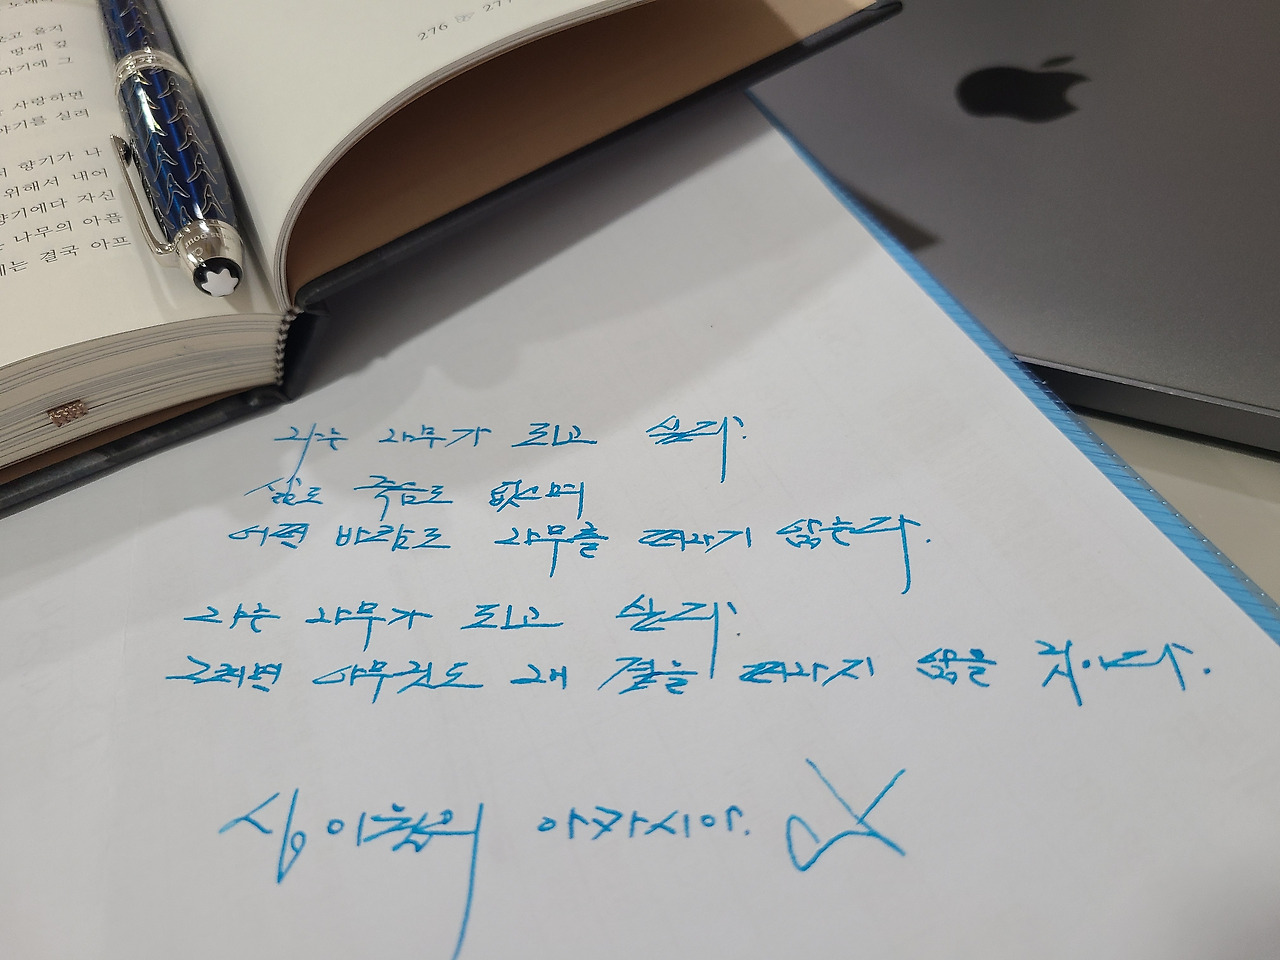 노래
웃고 울지
땅에 깊
야기에 그
사랑하면
야기를 실려
서 향기가 나
위해서 내어
향기에다 자신
는 나무의 아픔
에는 결국 아프
276 277
나는 나무가 되고 싶다.
삶도 죽음도 없으며
어떤 바람도 나무를 떠나지 않는다.
나는 나무가 되고 싶다.
그러면 아무것도 내 곁을 떠나지 않을 것이다.
아카시아.